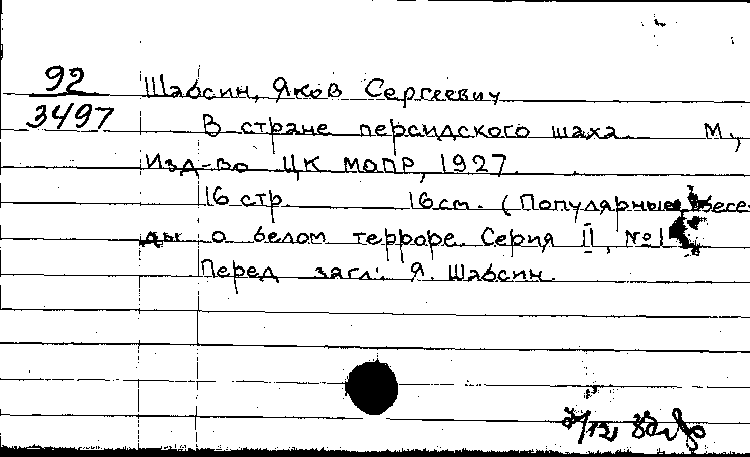 92
3497
Шабсин, Яков Сергеевич
В стране персидского шаха. М.,
Изд-во ЦК МОПР, 1927.
16 стр. 16 см. (Популярные бесе-
ды о белом терроре. Серия II, №1
Перед загл.: Я. Шабсин.